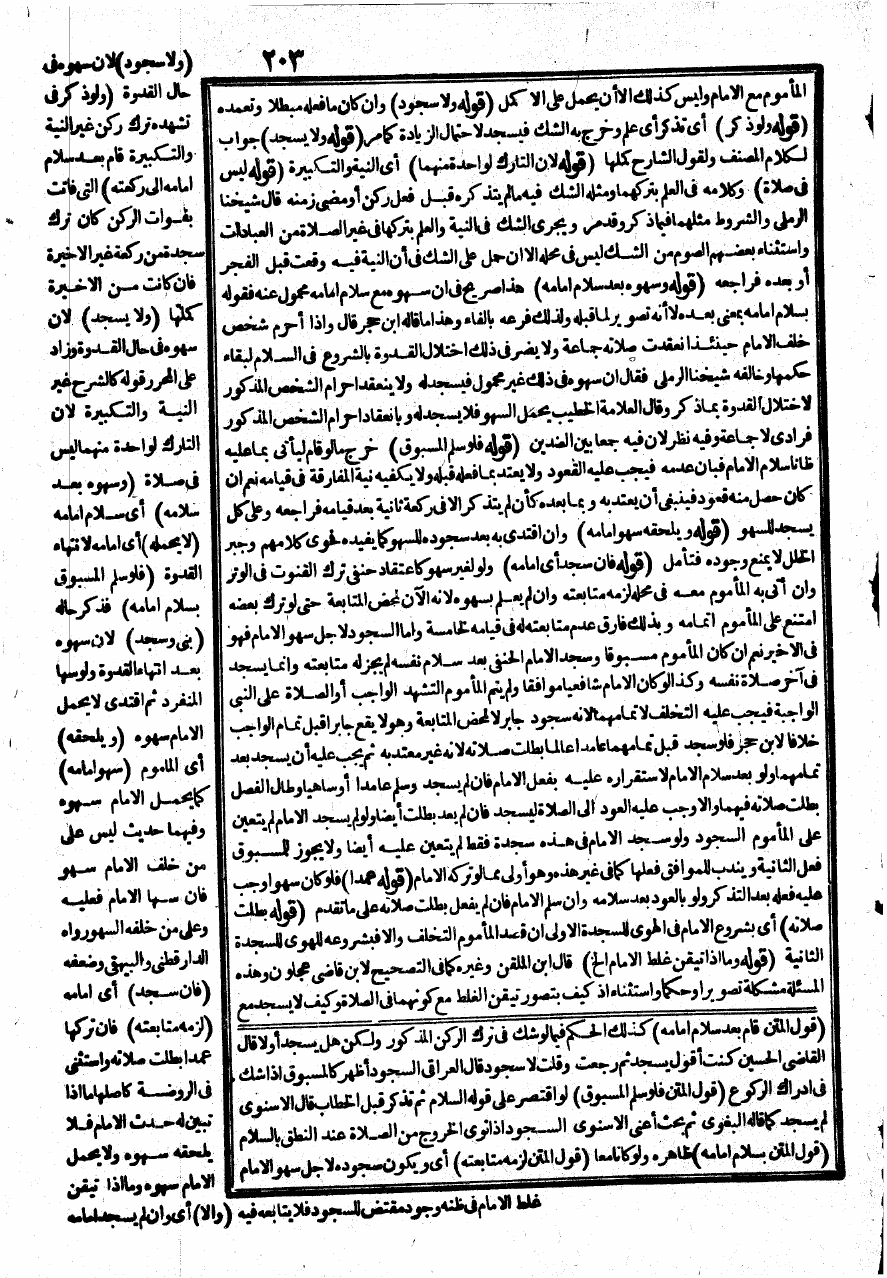 ٢٠٣
المأموم مع الامام وليس كذلك الا أن يحمل على الا كمل (قوله ولا سجود) وان كان ما فعله مبطلا وتعمده
(قوله ولو ذكر) أى تذكر أى علم وخرج به الشك فيسجد لاحتمال الزيادة كما مر (قوله ولا يسجد) جواب
لكلام المصنف ولقول الشارح كملها (قوله لان التارك لواحدة منهما) أى النية والتكبيرة (قوله ليس
فى صلاة) وكلامه فى العلم بتركهما ومثله الشك فيه ما لم يتذكره قبل فعل ركن أو مضى زمنه قال شيخنا
الرملى والشروط مثلهما فيما ذكر وقد مر ويجرى الشك فى النية والعلم بتركها فى غير الصلاة من العبادات
واستثناء بعضهم الصوم من الشك ليس فى محله الا ان حمل على الشك فى أن النية فيه وقعت قبل الفجر
أو بعده فراجعه (قوله وسهوه بعد سلام امامه) هذا صريح فى ان سهوه مع سلام امامه محمول عنه فقوله
بسلام امامه بمعنى بعده لا أنه تصوير لما قبله ولذلك فرعه بالفاء وهذا ما قاله ابن حجر قال واذا أحرم شخص
خلف الامام حينئذ انعقدت صلاته جماعة ولا يضر فى ذلك اختلال القدوة بالشروع فى السلام لبقاء
حكمها وخالفه شيخنا الرملى فقال ان سهوه فى ذلك غير محمول فيسجد له ولا ينعقد احرام الشخص المذكور
لاختلال القدوة بما ذكر وقال العلامة الخطيب بحمل السهو فلا يسجد له وبانعقاد احرام الشخص المذكور
فرادى لا جماعة وفيه نظر لان فيه جمعا بين الضدين (قوله فلو سلم المسبوق) خرج ما لو قام ليأتى بما عليه
ظانا سلام الامام فبان عدمه فيجب عليه القعود ولا يعتد بما فعله قبله ولا يكفيه نية المفارقة فى قيامه نعم ان
كان حصل منه قعود فينبغى أن يعتد به وبما بعده كأن لم يتذكر الا فى ركعة ثانية بعد قيامه فراجعه وعلى كل
يسجد للسهو (قوله ويلحقه سهو امامه) وان اقتدى به بعد سجوده للسهو كما يفيده فحوى كلامهم وجبر
الخلل لا يمنع وجوده فتأمل (قوله فان سجد أى امامه) ولو لغير سهو كاعتقاد حنفى ترك القنوت فى الوتر
وان أتى به المأموم معه فى محله لزمه متابعته وان لم يعلم بسهوه لانه الآن لمحض المتابعة حتى لو ترك بعضه
امتنع على المأموم اتمامه وبذلك فارق عدم متابعته له فى قيامه لخامسة واما السجود لاجل سهو الامام فهو
فى الاخير نعم ان كان المأموم مسبوقا وسجد الامام الحنفى بعد سلام نفسه لم يجز له متابعته وانما يسجد
فى آخر صلاة نفسه وكذا لو كان الامام شافعيا موافقا ولم يتم المأموم التشهد الواجب أو الصلاة على النبى
الواجبة فيجب عليه التخلف لاتمامهما لانه سجود جابر لا لمحض المتابعة وهو لا يقع جابرا قبل تمام الواجب
خلافا لابن حجر فلو سجد قبل تمامهما عامدا عالما بطلت صلاته لانه غير معتد به ثم يجب عليه أن يسجد بعد
تمامهما ولو بعد سلام الامام لاستقراره عليه بفعل الامام فان لم يسجد وسلم عامدا أو ساهيا وطال الفصل
بطلت صلاته فيهما والا وجب عليه العود الى الصلاة ليسجد فان لم يعد بطلت أيضا ولو لم يسجد الامام لم يتعين
على المأموم السجود ولو سجد الامام فى هذه سجدة فقط لم يتعين عليه أيضا ولا يجوز للمسبوق
فعل الثانية ويندب للموافق فعلها كما فى غير هذه وهو أولى مما لو تركه الامام (قوله عمدا) فلو كان سهوا وجب
عليه فعله بعد التذكر ولو بالعود بعد سلامه وان سلم الامام فان لم يفعل بطلت صلاته على ما تقدم (قوله بطلت
صلاته) أى بشروع الامام فى الهوى للسجدة الاولى ان قصد المأموم التخلف والا فبشروعه للهوى للسجدة
الثانية (قوله وما اذا تيقن غلط الامام الخ) قال ابن الملقن وغيره كما فى التصحيح لابن قاضى عجلون وهذه
المسئلة مشكلة تصويرا وحكما واستثناء اذ كيف يتصور تيقن الغلط مع كونهما فى الصلاة وكيف لا يسجد مع
(قول المتن قام بعد سلام امامه) كذلك الحكم فيما لو شك فى ترك الركن المذكور ولكن هل يسجد أولا قال
القاضى الحسين كنت أقول يسجد ثم رجعت وقلت لا سجود قال العراقى السجود أظهر كالمسبوق اذا شك
فى ادراك الركوع (قول المتن فلو سلم المسبوق) لو اقتصر على قوله السلام ثم تذكر قبل الخطاب قال الاسنوى
لم يسجد كما قاله البغوى ثم بحث أعنى الاسنوى السجود اذا نوى الخروج من الصلاة عند النطق بالسلام
(قول المتن بسلام امامه) ظاهره ولو كانا معا (قول المتن لزمه متابعته) أى ويكون سجوده لاجل سهو الامام
(ولا سجود) لان سهوه فى
حال القدوة (ولو ذكر فى
تشهده ترك ركن غير النية
والتكبيرة قام بعد سلام
امامه الى ركعته) التى فاتت
بفوات الركن كان ترك
سجدة من ركعة غير الاخيرة
فان كانت من الاخيرة
كملها (ولا يسجد) لان
سهوه فى حال القدوة وزاد
على المحرر قوله كالشرح غير
النية والتكبيرة لان
التارك لواحدة منهما ليس
فى صلاة (وسهوه بعد
سلامه) أى سلام امامه
(لا يحمله) أى امامه لانتهاء
القدوة (فلو سلم المسبوق
بسلام امامه) فذكر حاله
(بنى وسجد) لان سهوه
بعد انتهاء القدوة ولو سها
المنفرد ثم اقتدى لا يحمل
الامام سهوه (ويلحقه)
أى المأموم (سهو امامه)
كما يحمل الامام سهوه
وفيهما حديث ليس على
من خلف الامام سهو
فان سها الامام فعليه
وعلى من خلفه السهو رواه
الدارقطنى والبيهقى وضعفه
(فان سجد) أى امامه
(لزمه متابعته) فان تركها
عمدا بطلت صلاته واستثنى
فى الروضة كاصلها ما اذا
تبين له حدث الامام فلا
يلحقه سهوه ولا يحمل
الامام سهوه وما اذا تيقن
غلط الامام فى ظنه وجود مقتض للسجود فلا يتابعه فيه (والا) أى وان لم يسجد امامه